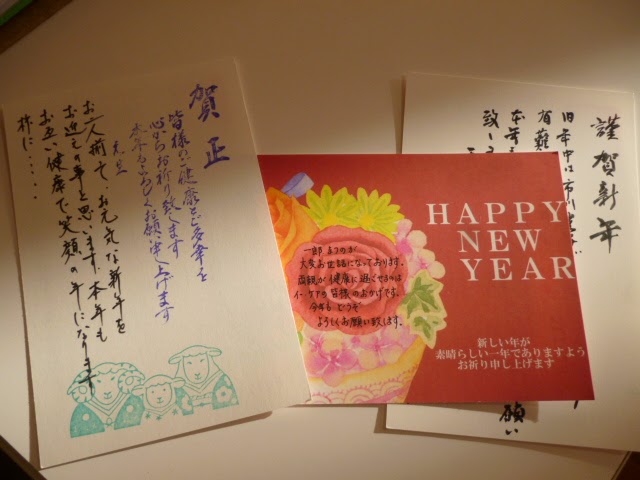 賀正
皆様のご健康とご多幸を
心からお祈り致します
本年もよろしくお願い申し上げます
元旦
お二人揃って、お元気な新年を
お迎えの事と思います。本年も
お互い健康で笑顔の年になります
様に・・・・
HAPPY
NEW
YEAR
大変お世話になっております。
両親が健康に過ごせるのは
イ・ケアの皆様のおかげです。
今年もどうぞ
よろしくお願い致します。
新しい年が
素晴らしい一年でありますよう
お祈り申し上げます
謹賀新年
旧年中は
有難
本年
致し
願い